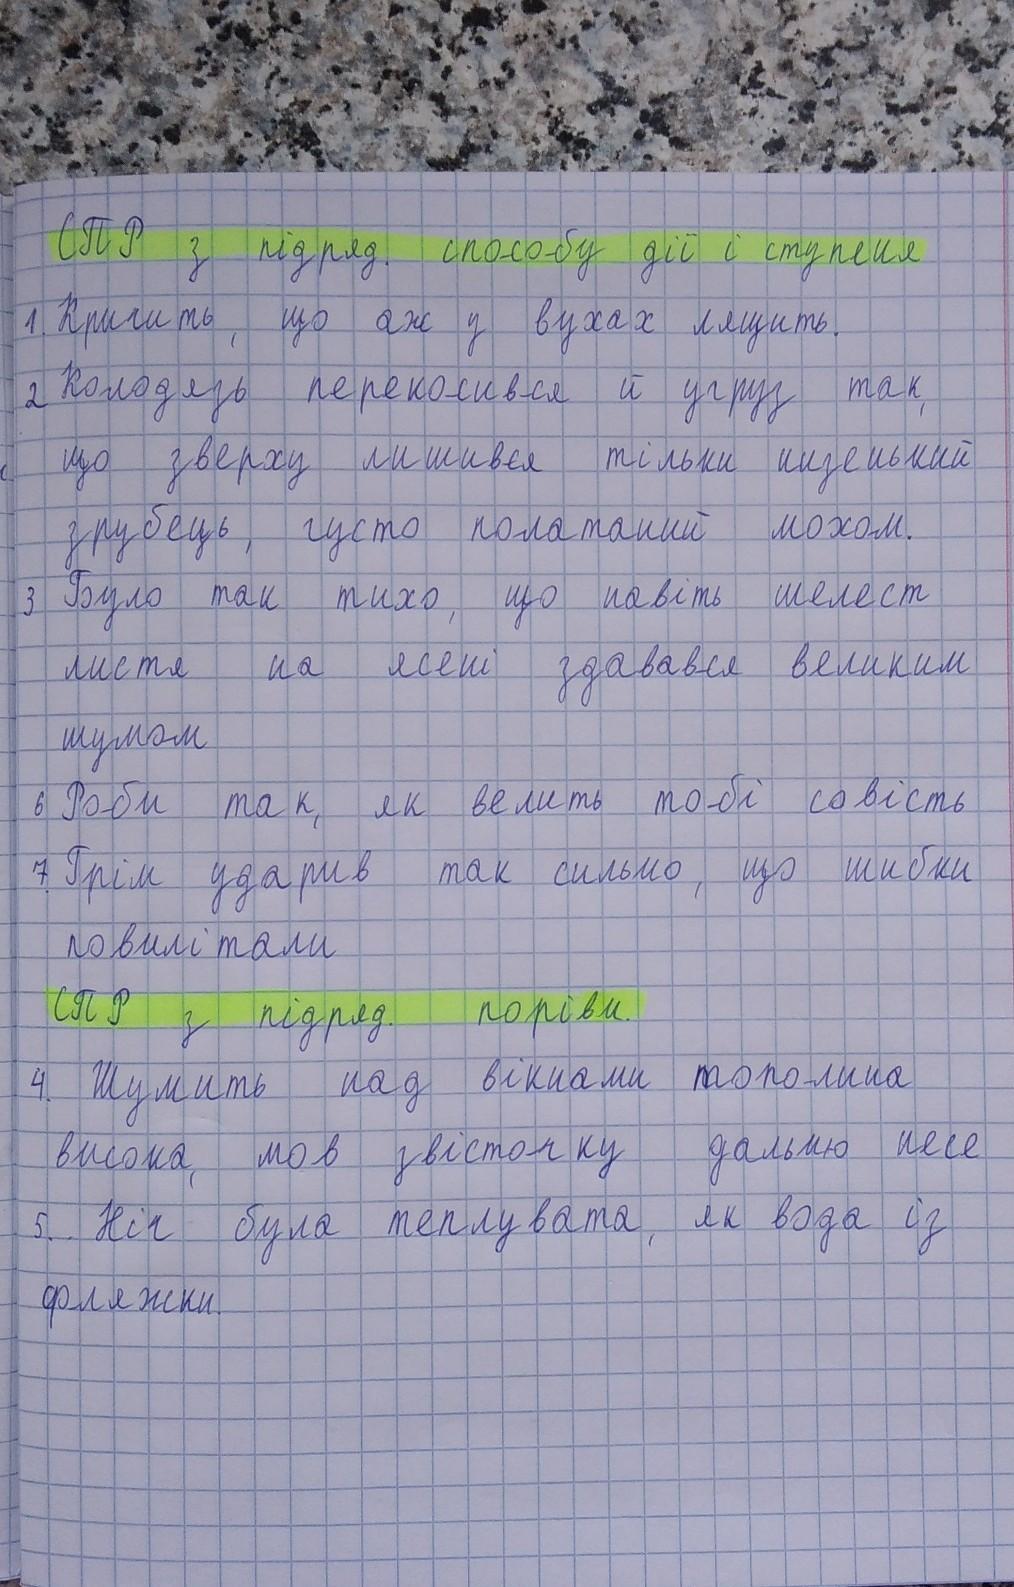 СПР з підряд. способу дії і ступеня
1. Кричить, що аж у вухах лящить.
2 Колодязь перекосився й угруз так,
що зверху лишився тільки низенький
зрубець, густо полатаний мохом.
3 Було так тихо, що навіть шелест
листя на ясені здавався великим
шумом
6 Роби так, як велить тобі совість
7. Грім ударив так сильно, що шибки
повилітали
СПР з підряд. порівн.
4. Шумить над вікнами тополина
висока, мов звісточку дальню несе
5. Ніч була теплувата, як вода із
фляжки.